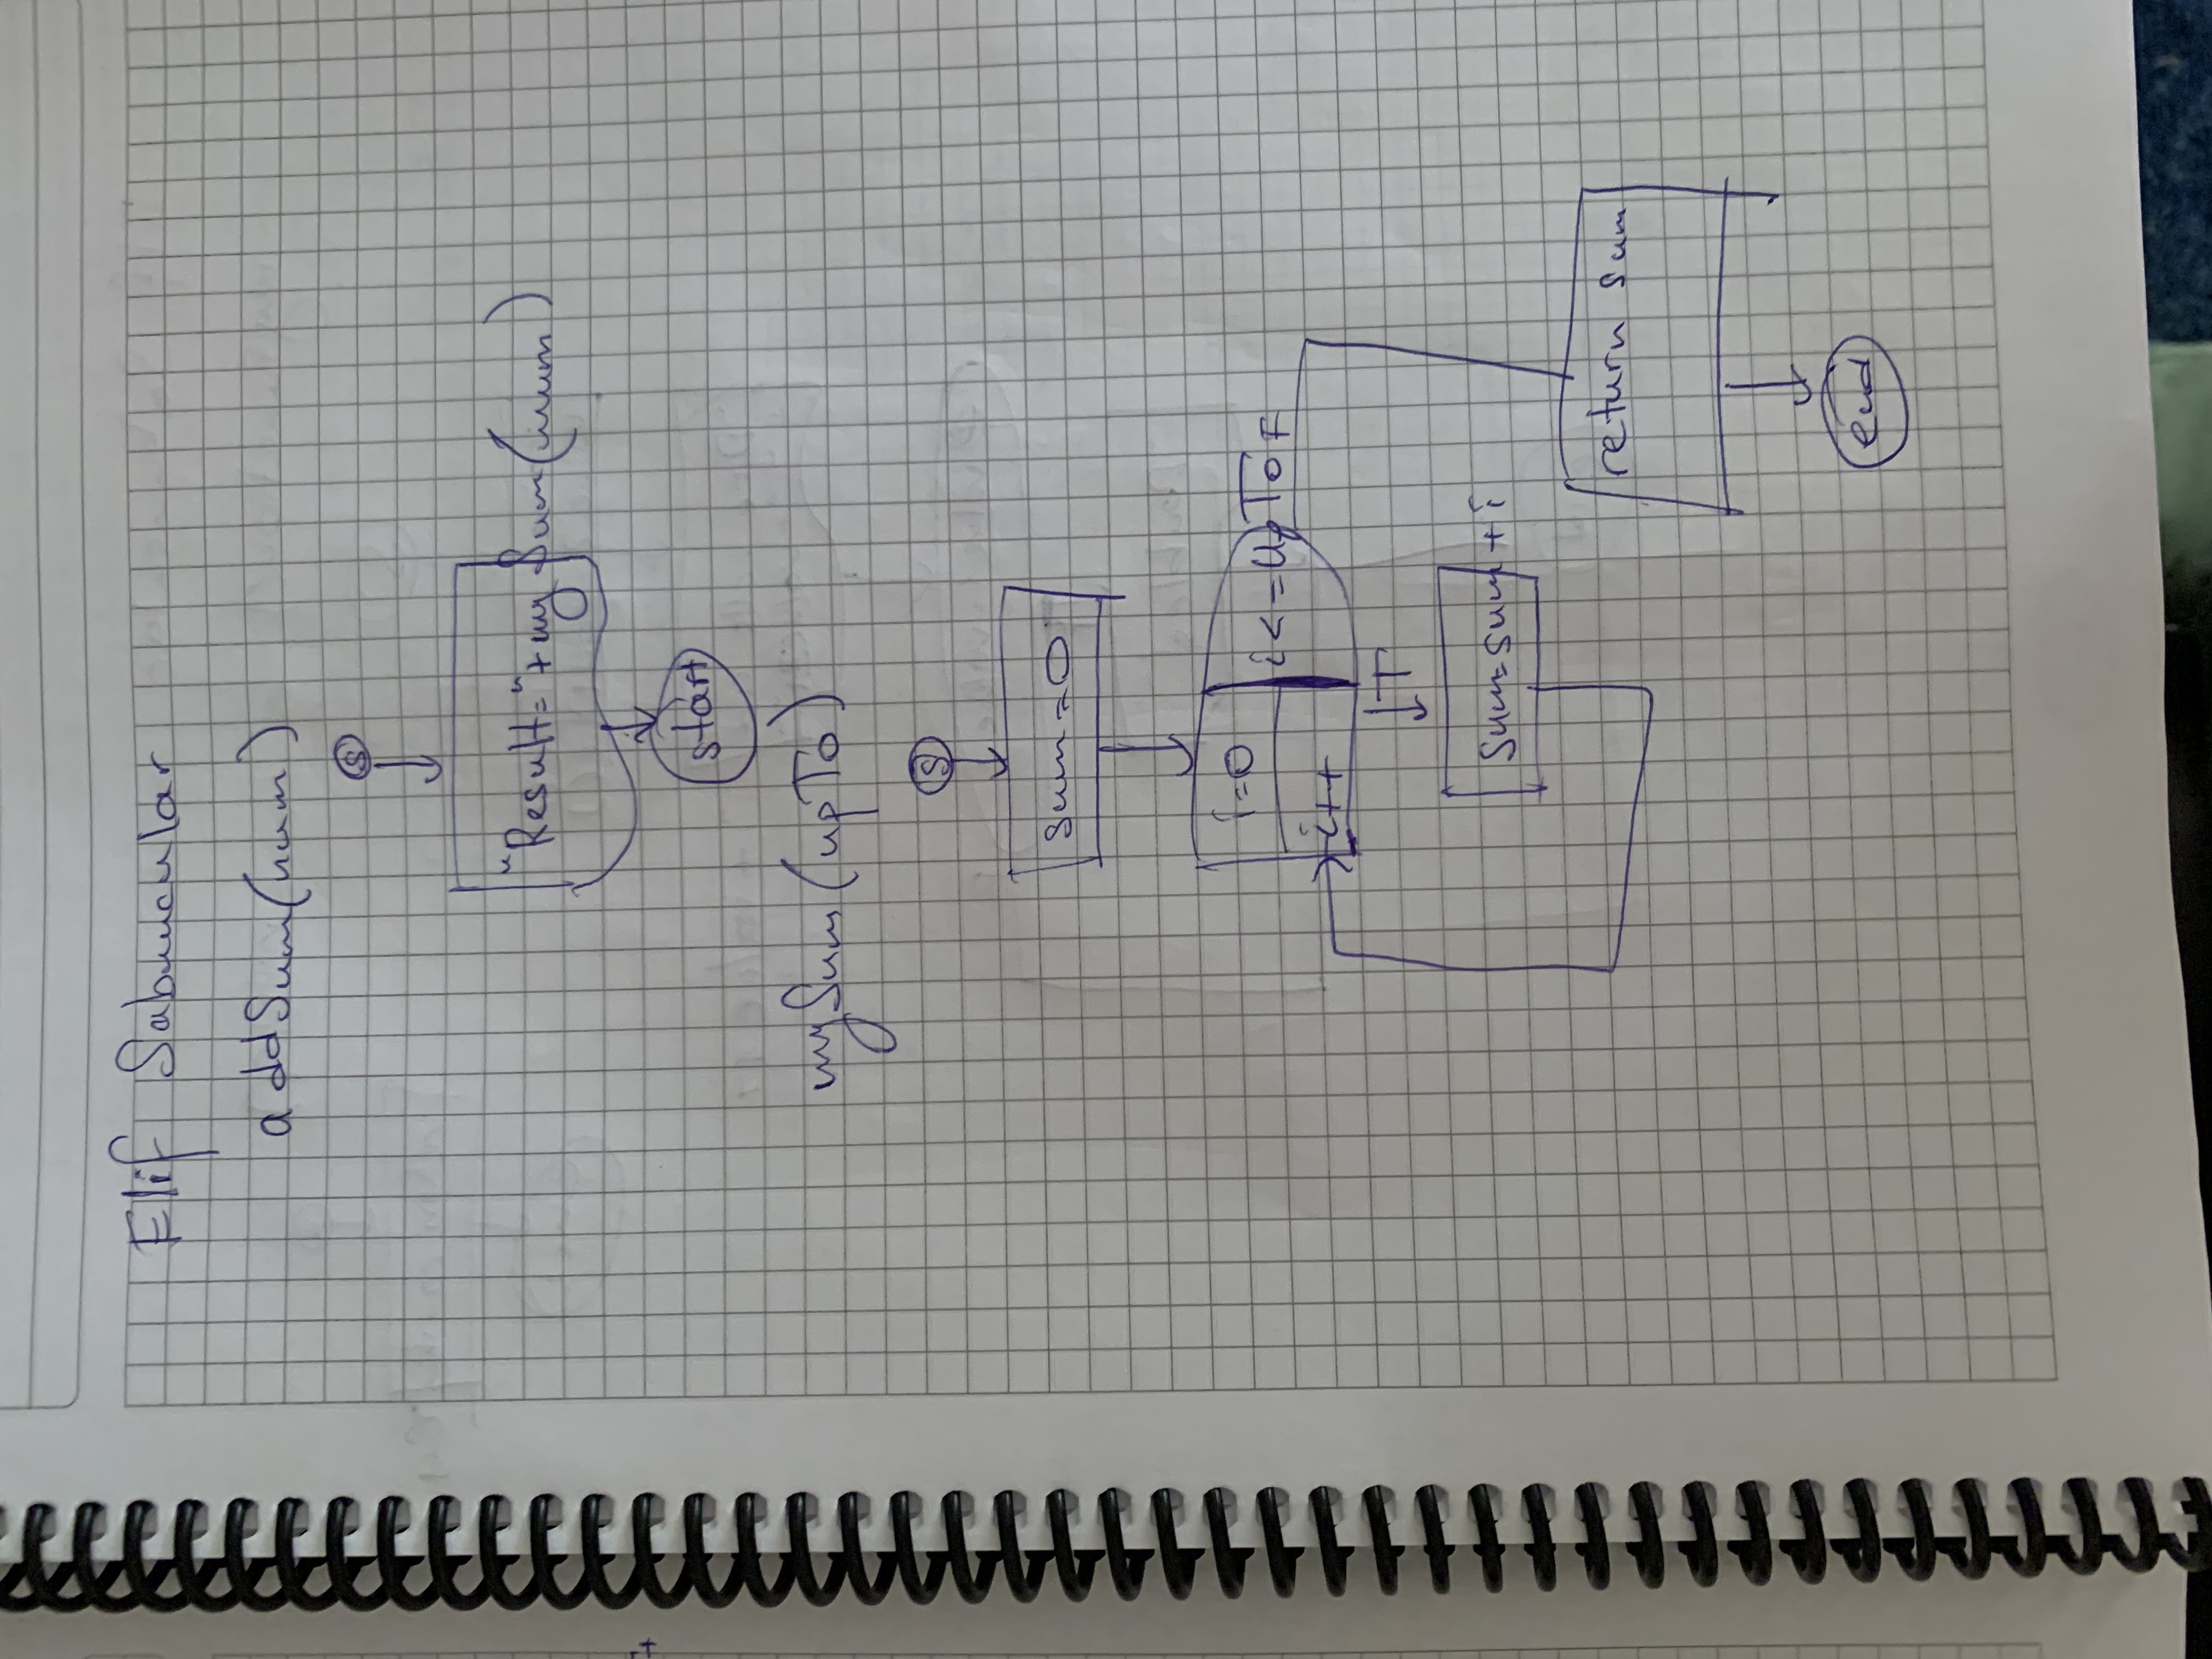 Elif Sabuncular
addSum(num)
S
"Result="+mySum(num)
start
mySum(upTo)
S
sum=0
i=0
i<=UpTo F
i++
T
Sum=sum+i
return sum
end